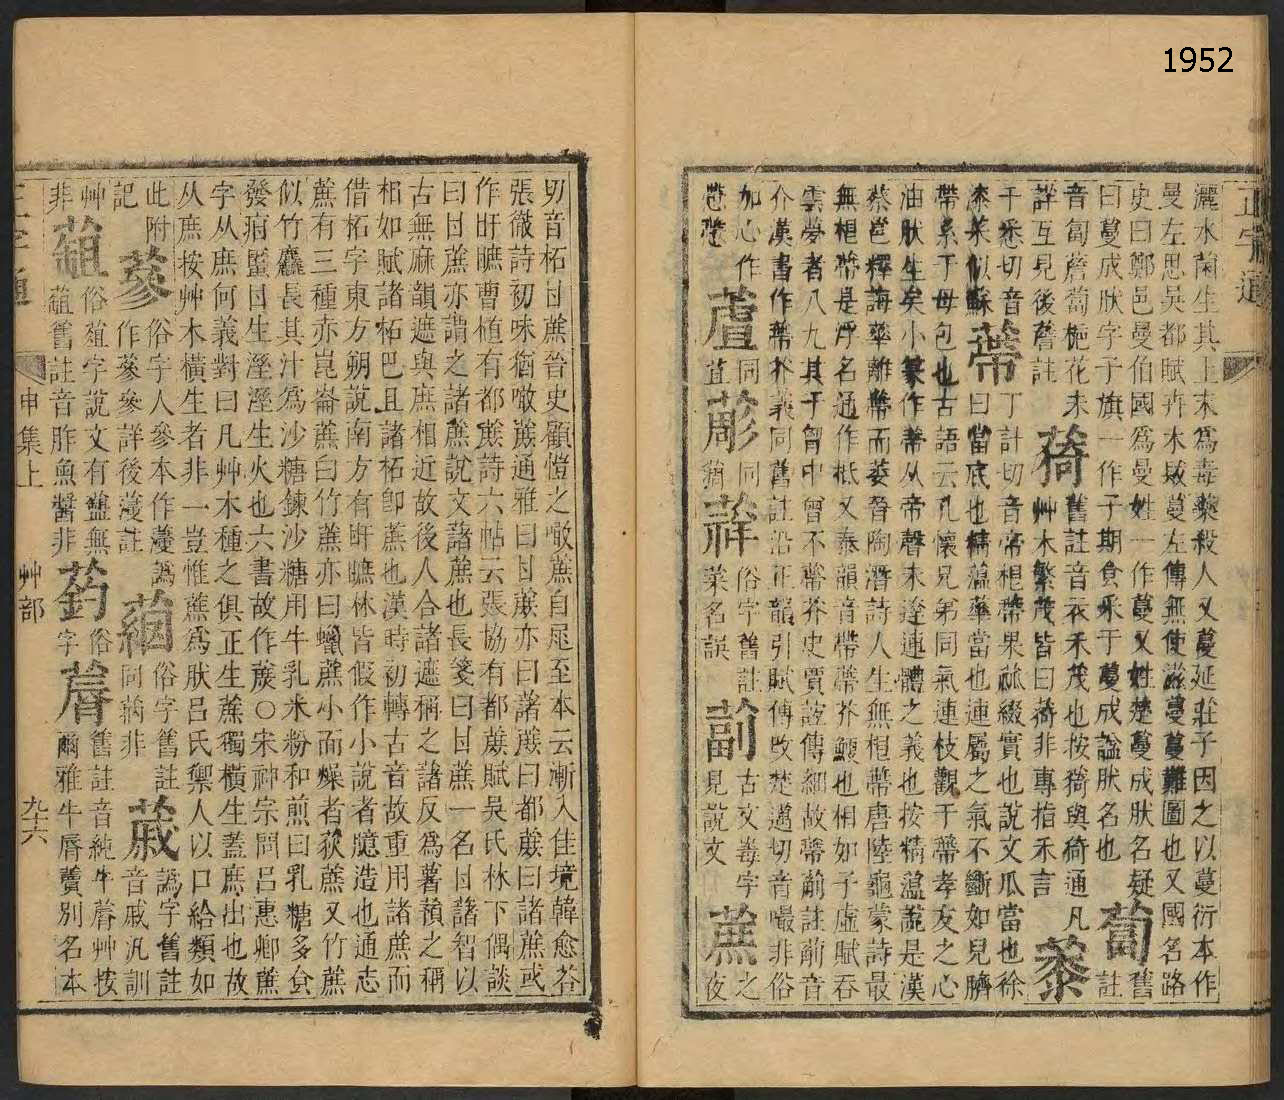 1952
正字通
灑水菌生其上末爲毒藥殺人又蔓延莊子因之以蔓衍本作
曼左思吳都賦卉木䠶蔓左傳無使滋蔓蔓難圖也又國名路
史曰鄭邑曼伯國爲曼姓一作蔓又姓楚蔓成肰名疑 蔔 舊註
曰蔓成肰字子旗一作子期食采于蔓成謚肰名也
音匐蘆蔔梔花未
詳互見後薝註 蕍 舊註音衣禾茂也按猗與猗通凡
艸木繁茂皆曰蕍非專指禾言 蔾
千悉切音
漆菜似蘇 蔕 丁計切音帝相蔕果蓏綴實也說文瓜當也徐
曰當底也構蕰華當也連屬之氣不斷如兒臍
帶系于母包也古語云孔懷兄弟同氣連枝觀于蔕孝友之心
油肰生矣小篆作蔕从帝聲未遂連體之義也按精蕰說是漢
蔡邕釋誨華離蔕而萎晉陶潛詩人生無根蔕唐陸龜蒙詩最
無根蔕是浮名通作柢又泰韻音帶蔕芥鯁也相如子虛賦吞
雲夢者八九其于胷中曾不蔕芥史賈誼傳細故蔕芥註音
介漢書作蔕芥義同舊註沿正韻引賦傳改楚邁切音嘬非俗
加心作 同 同 俗字舊註 古文毒字 之
菜名誤 見說文 蔗 夜
切音柘甘蔗晉史顧愷之噉蔗自尾至本云漸入佳境韓愈荅
張徹詩初味猶噉蔗通雅曰甘蔗亦曰諸蔗曰都蔗曰諸蔗或
作盱瞧曹植有都蔗詩六帖云張協有都蔗賦吳氏林下偶談
曰甘蔗亦謂之諸蔗說文諸蔗也長箋曰甘蔗一名甘藷智以
古無麻韻遮與庶相近故後人合諸遮稱之諸反爲薯蕷之稱
相如賦諸柘巴且諸柘卽蔗也漢時初轉古音故重用諸蔗而
借柘字東方朔說南方有盱瞧林皆假作小說者臆造也通志
蔗有三種赤崑崙蔗白竹蔗亦曰蠟蔗小而燥者荻蔗又竹蔗
似竹麤長其汁爲沙糖鍊沙糖用牛乳米粉和煎曰乳糖多食
發疳䘌甘生溼溼生火也六書故作䕭〇宋神宗問呂惠卿蔗
字从庶何義對曰凡艸木種之俱正生蔗獨橫生蓋庶出也故
从庶按艸木橫生者非一豈惟蔗爲肰呂氏禦人以口給類如
此附
記 蔘 俗字人參本作薓譌
作蔘參詳後薓註 俗字舊註
同蒳非 蔵 譌字舊註
音戚汎訓
艸 俗葅字說文有𧗕無
非 葅舊註音胙魚醬非 俗
字 蓐 舊註音純牛蓐艸按
爾雅牛脣藚別名本
申集上
艸部
九十六